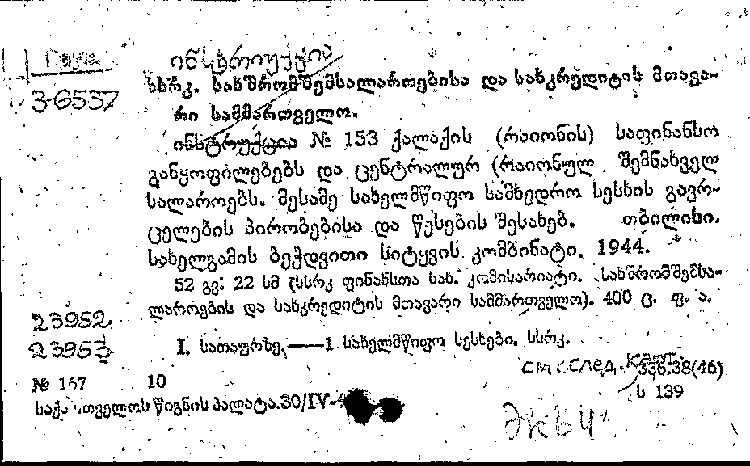 ინსტრუქცია
3-6557
სსრკ. სახშრომშემსალაროებისა და სახკრედიტის მთავა-
რი სამმართველო.
ინსტრუქცია № 153 ქალაქის (რაიონის) საფინანსო
განყოფილებებს და ცენტრალურ (რაიონულ შემნახველ
სალაროებს. მესამე სახელმწიფო სამხედრო სესხის გავრ-
ცელების პირობებისა და წესების შესახებ. თბილისი.
სახელგამის ბეჭდვითი სიტყვის კომბინატი. 1944.
52 გვ; 22 სმ (სსრკ ფინანსთა სახ. კომისარიატი. სახშრომშემსა-
ლაროების და სახკრედიტის მთავარი სამმართველო). 400 ც. ფ. ა.
23952
23953
I. სათაურზე.——1 სახელმწიფო სესხები. სსრკ.
см. след. карт.
336.38(46)
№ 157 10
ს 139
საქართველოს წიგნის პალატა.30/IV-